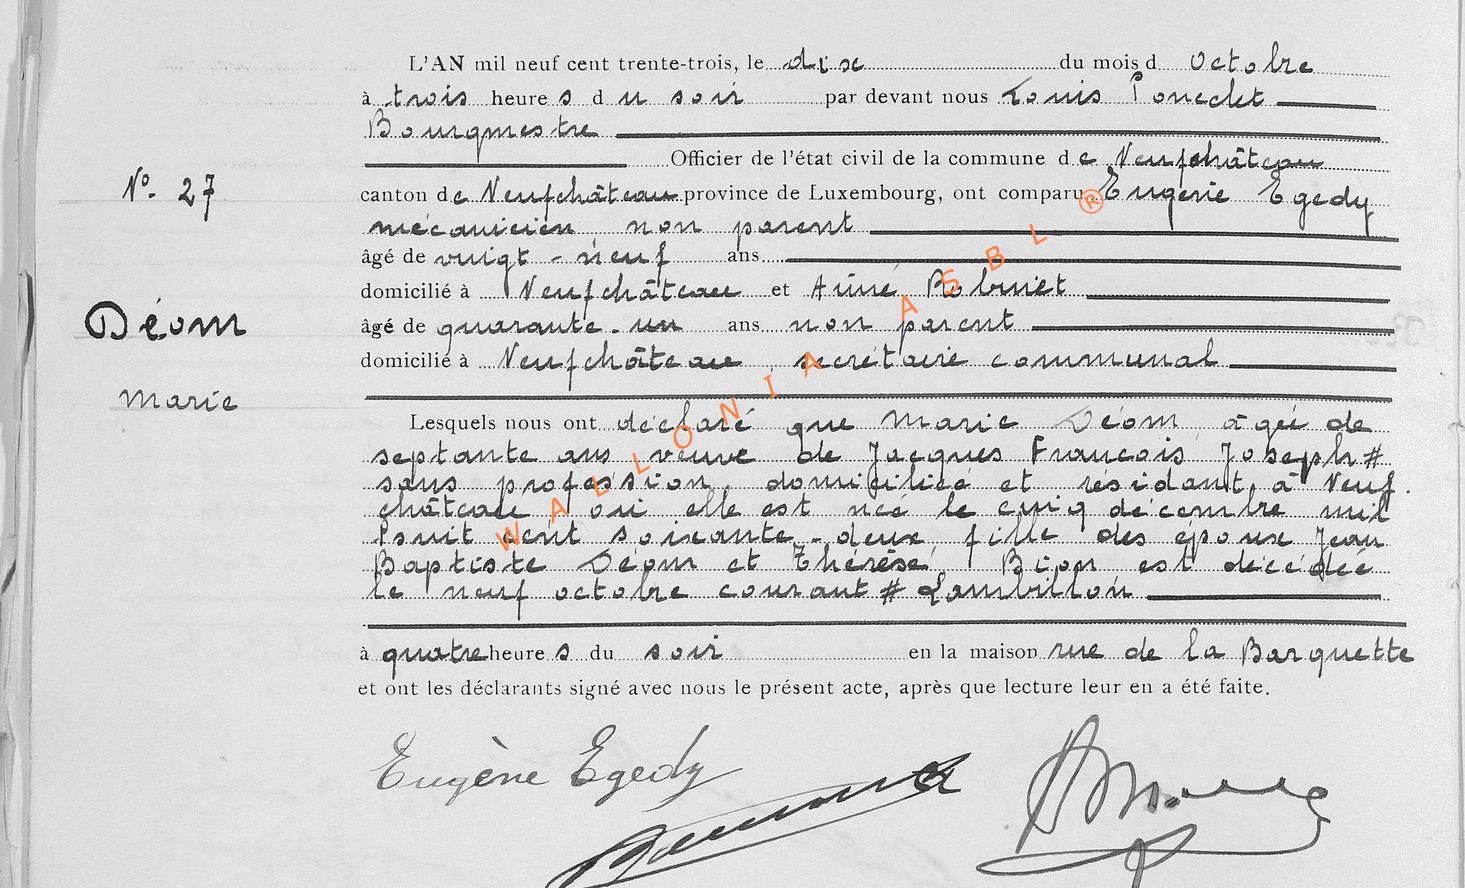 L'AN mil neuf cent trente-trois, le dix du mois d Octobre
à trois heure s d u soir par devant nous Louis Poncelet
Bourgmestre
Officier de l'état civil de la commune de Neufchâteau
N° 27
canton de Neufchâteau province de Luxembourg, ont comparu Eugène Egedy
mécanicien non parent
âgé de vingt-neuf ans
domicilié à Neufchâteau et Aimé Robinet
Déom
âgé de quarante-un ans non parent
domicilié à Neufchâteau, secrétaire communal
Marie
Lesquels nous ont déclaré que Marie Déom, âgée de
septante ans veuve de Jacques François Joseph #
sans profession, domiciliée et résidant à Neuf
château où elle est née le cinq décembre mil
huit cent soixante-deux, fille des époux Jean
Baptiste Déom et Thérèse Bion est décédée
le neuf octobre courant # Lambillon
à quatre heure s du soir en la maison rue de la Barquette
et ont les déclarants signé avec nous le présent acte, après que lecture leur en a été faite.
Eugène Egedy
WALLONIA ASBL ®